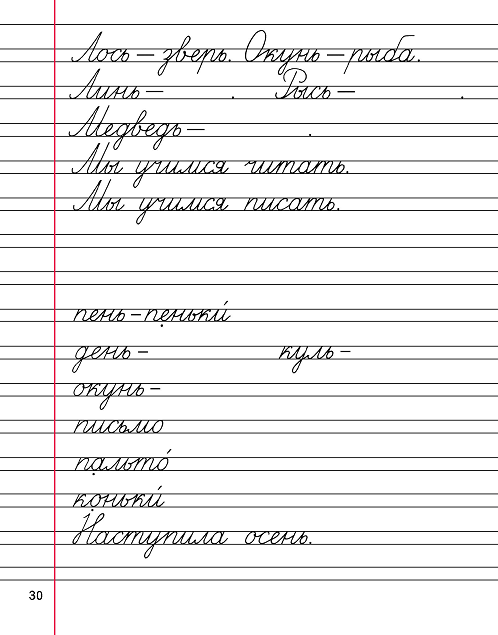 Лось – зверь. Окунь – рыба.
Линь – . Рысь – .
Медведь – .
Мы учимся читать.
Мы учимся писать.
пень – пеньки́
день – куль –
окунь –
письмо
пальто́
коньки́
Наступила осень.
30